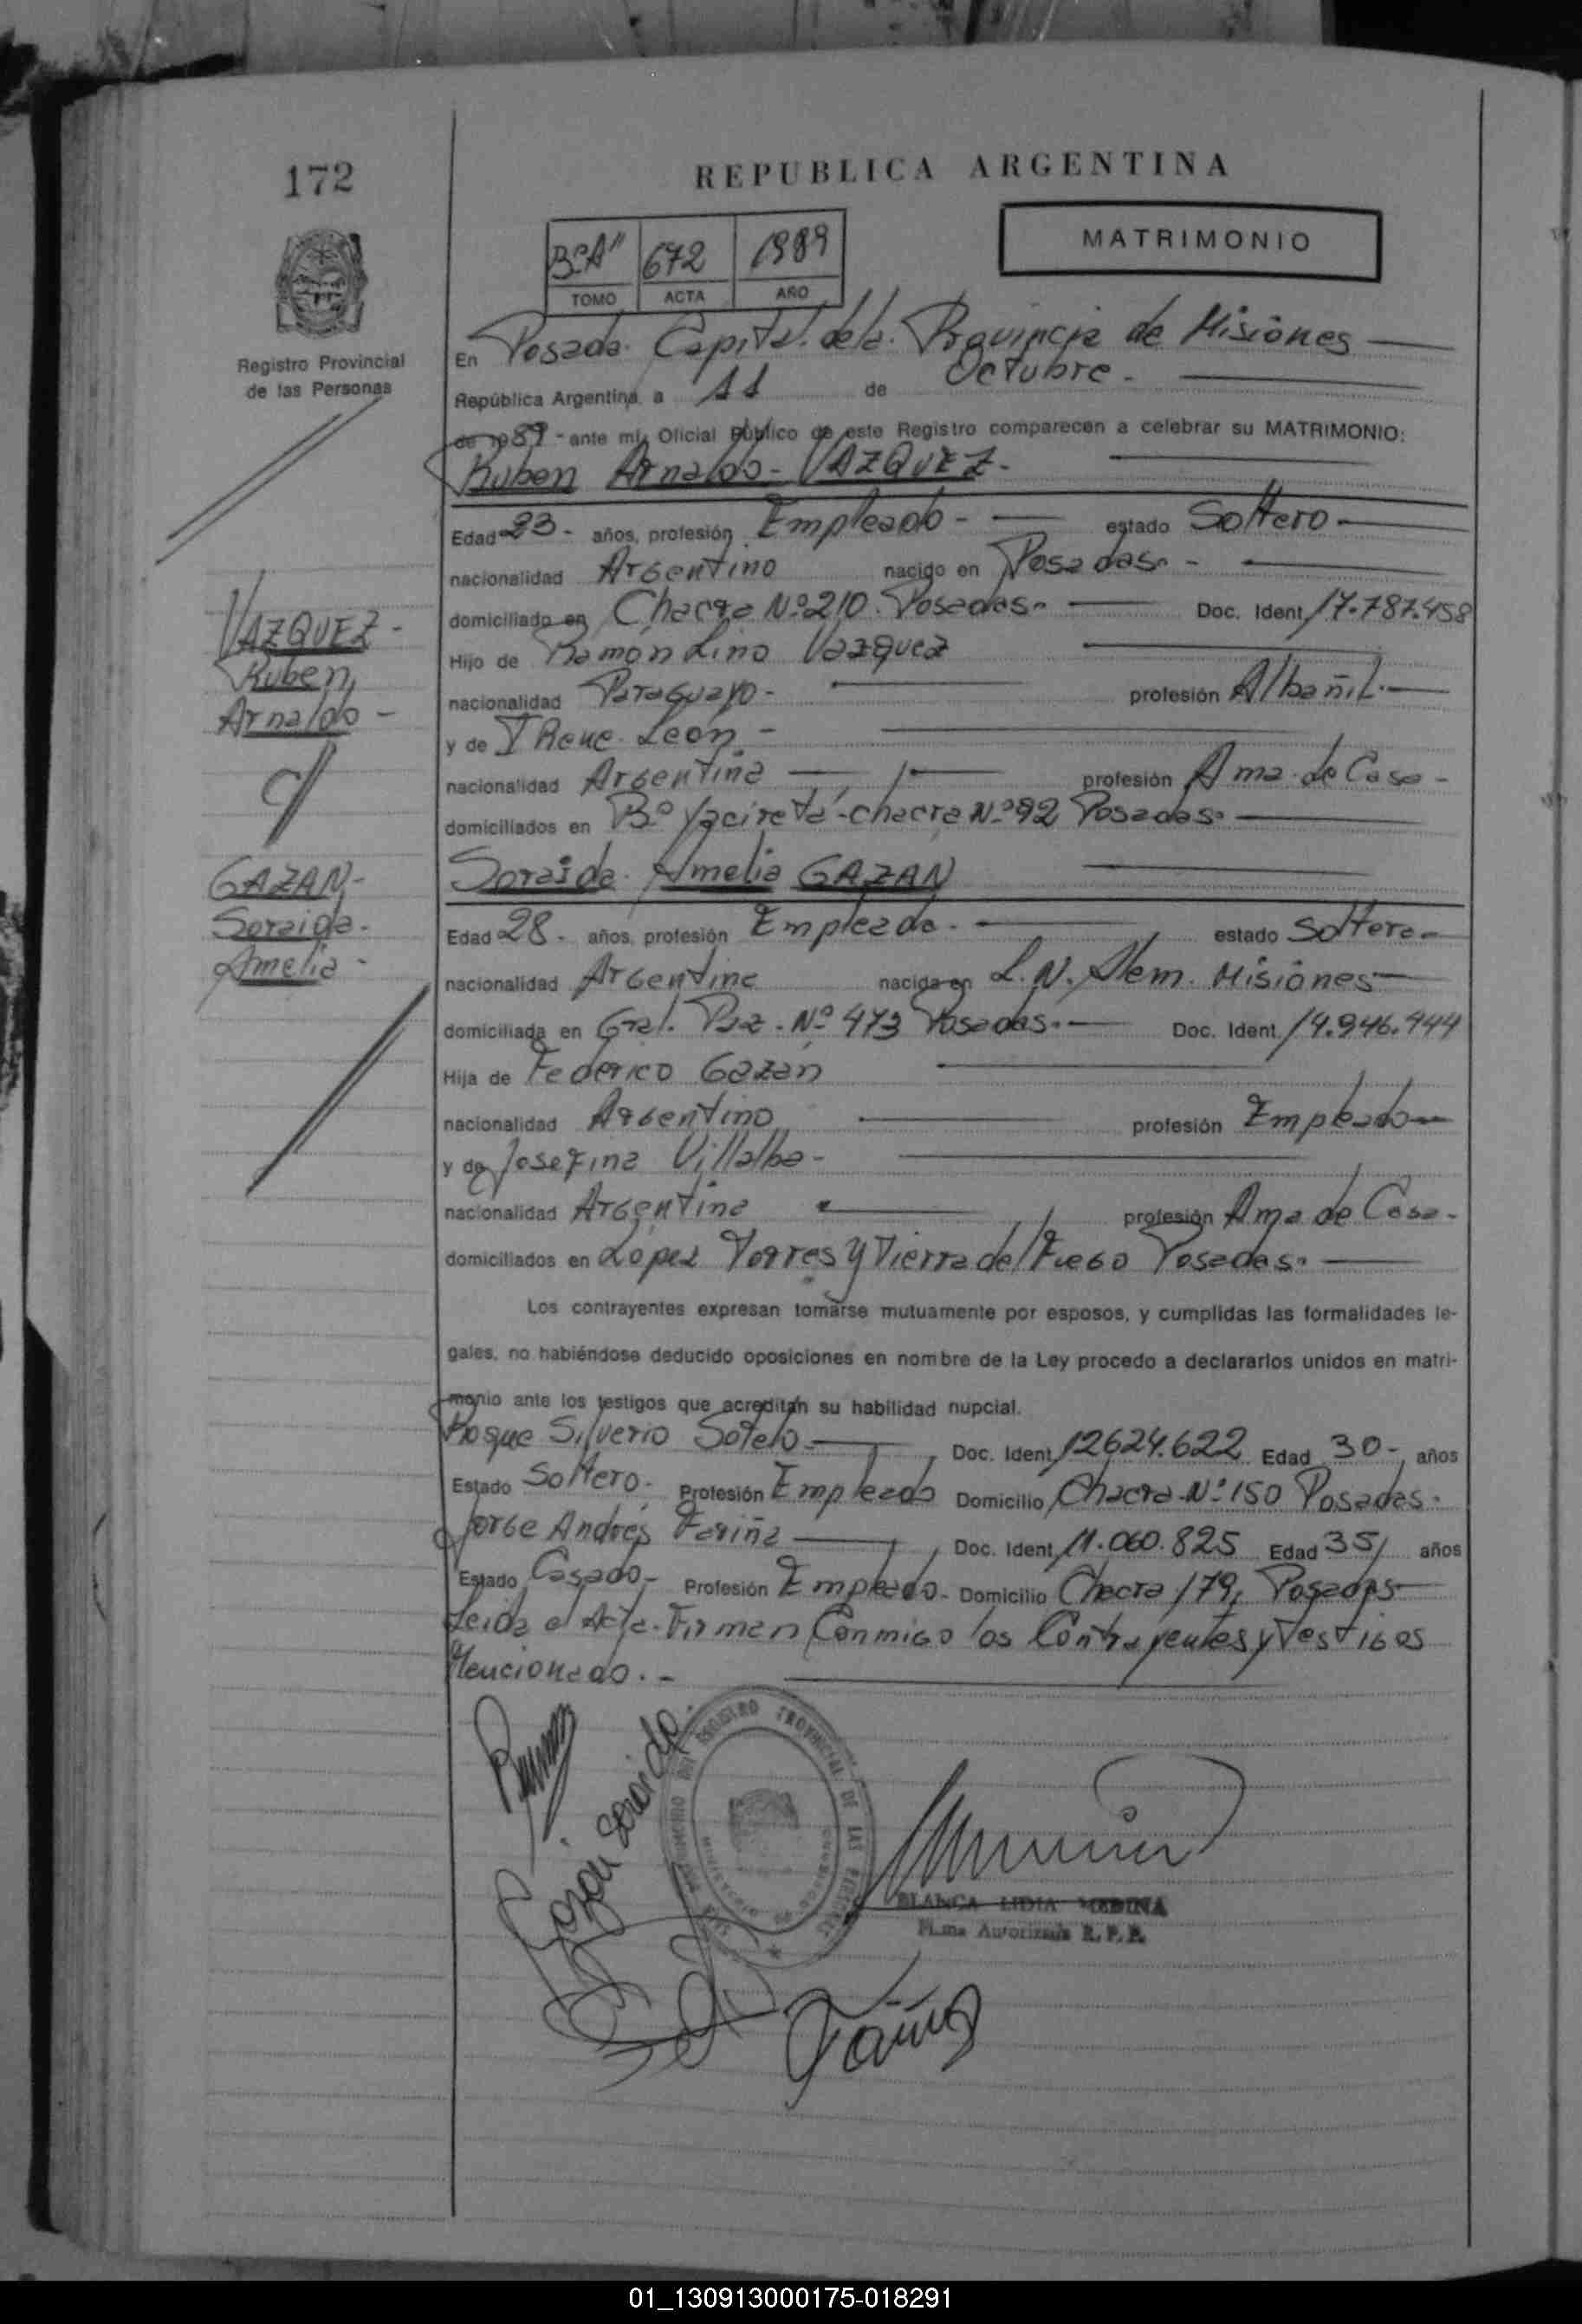 172
REPUBLICA ARGENTINA
MATRIMONIO
Bº"A" 672 1989
TOMO ACTA AÑO
Registro Provincial
de las Personas
En Posada. Capital. de la. Provincia de Misiones
República Argentina, a 11 de Octubre -
de 1989 - ante mí, Oficial Público de este Registro comparecen a celebrar su MATRIMONIO:
Ruben Arnaldo - VAZQUEZ -
Edad 23 - años, profesión Empleado - estado Soltero -
nacionalidad Argentino nacido en Posadas. -
domiciliado en Chacra Nº 210. Posadas. - Doc. Ident. 17.787.458
Hijo de Ramón Lino Vazquez
nacionalidad Paraguayo - profesión Albañil. -
y de IRene León -
nacionalidad Argentina profesión Ama de Casa -
domiciliados en Bº Yacireta - chacra Nº 92 Posadas. -
VAZQUEZ -
Ruben
Arnaldo -
c/
Soraida Amelia GAZAN
Edad 28 - años, profesión Empleada. - estado Soltera -
nacionalidad Argentina nacida en L. N. Alem. Misiones
domiciliada en Gral. Paz - Nº 473 Posadas. - Doc. Ident. 14.946.444
Hija de Federico Gazán
nacionalidad Argentino profesión Empleado
y de Josefina Villalba -
nacionalidad Argentina profesión Ama de Casa -
domiciliados en López Torres y Tierra del Fuego Posadas. -
GAZAN -
Soraida -
Amelia -
Los contrayentes expresan tomarse mutuamente por esposos, y cumplidas las formalidades le-
gales, no habiéndose deducido oposiciones en nombre de la Ley procedo a declararlos unidos en matri-
monio ante los testigos que acreditan su habilidad nupcial.
Roque Silverio Sotelo - Doc. Ident. 12624.622 Edad 30 - años
Estado Soltero - Profesión Empleado Domicilio Chacra Nº 150 Posadas.
Jorge Andrés Fariña Doc. Ident. 11.060.825 Edad 35 años
Estado Casado - Profesión Empleado - Domicilio Chacra 179, Posadas
Leida el Acta. Firman Conmigo los Contrayentes y Testigos
Mencionado. -
Gazán Soraida
REGISTRO PROVINCIAL DE LAS PERSONAS
BLANCA LIDIA MEDINA
Firma Autorizada R. P. P.
Fariña
01_130913000175-018291